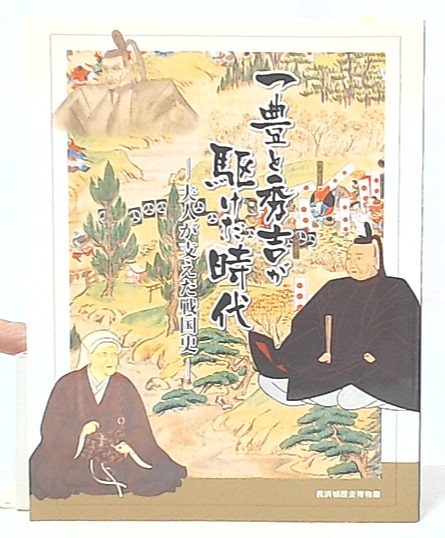 一豊と秀吉が
駆けた時代
―夫人が支えた戦国史―
長浜城歴史博物館